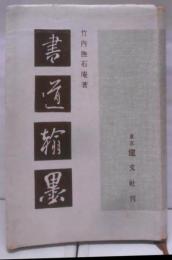 書道翰墨
竹内撫石庵著
東京 健文社刊